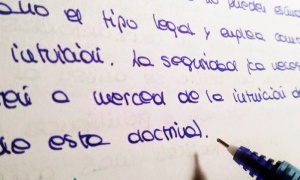 no pueden
el tipo legal y emplea como
intuición. La seguridad (la neces
a merced de la intuición d
de esta doctrina).